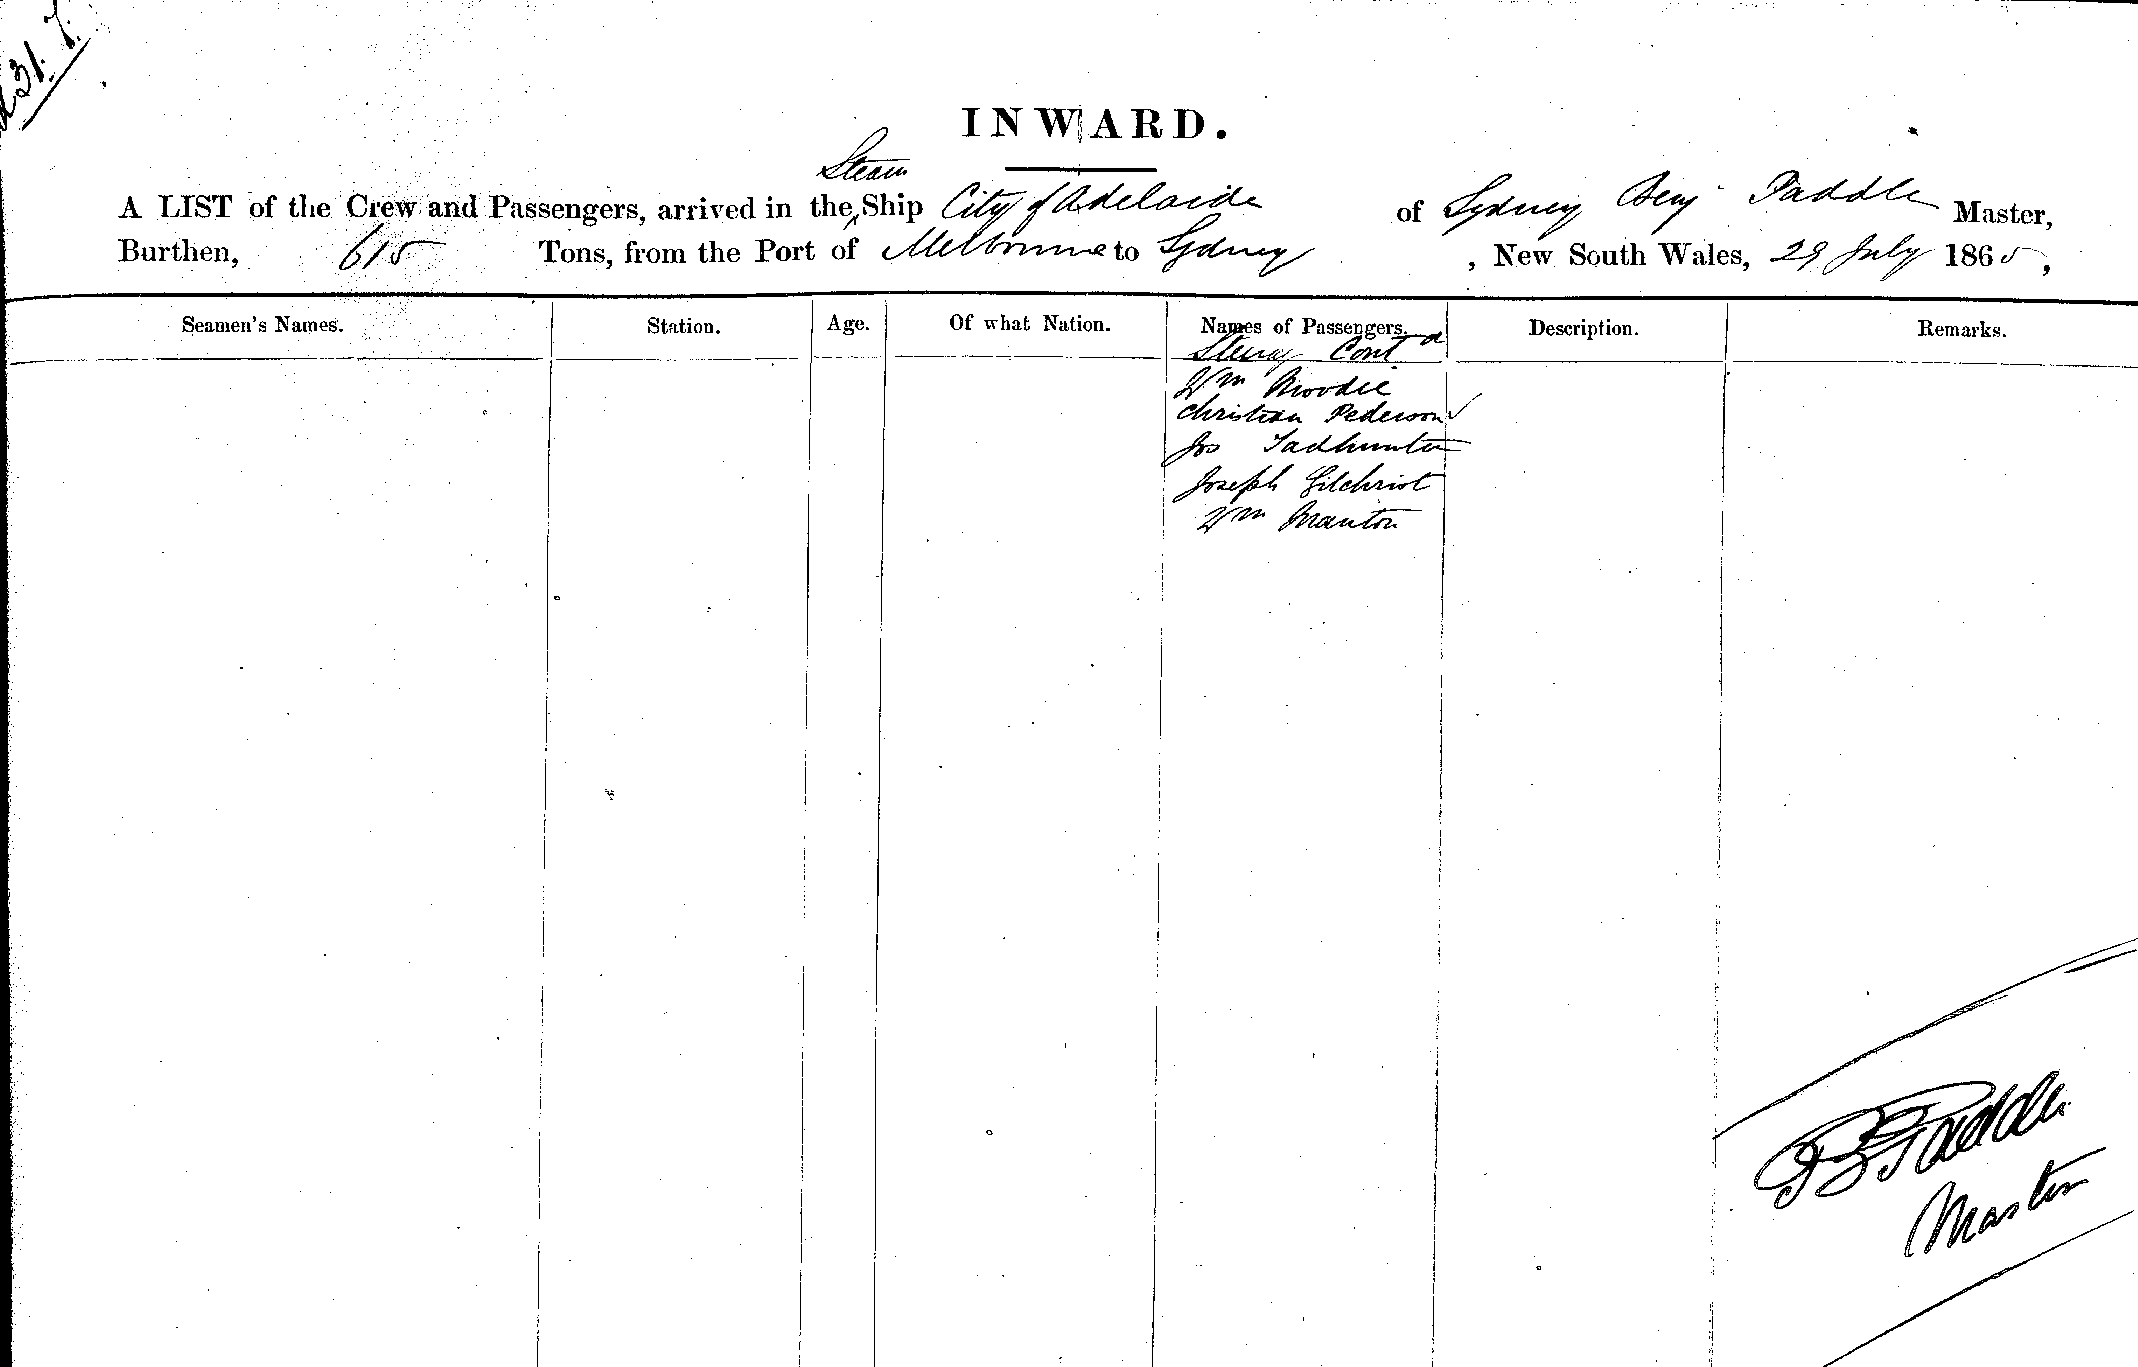 31. 7.
INWARD.
Steam
A LIST of the Crew and Passengers, arrived in the Ship City of Adelaide of Sydney Benj Paddle Master,
Burthen, 615 Tons, from the Port of Melbourne to Sydney, New South Wales, 29 July 1865,
Seamen's Names. Station. Age. Of what Nation. Names of Passengers. Description. Remarks.
Steerg Cont d
Wm Moodie
Christian Pederson
Jos Tadhunter
Joseph Gilchrist
Wm Manton
B Paddle
Master